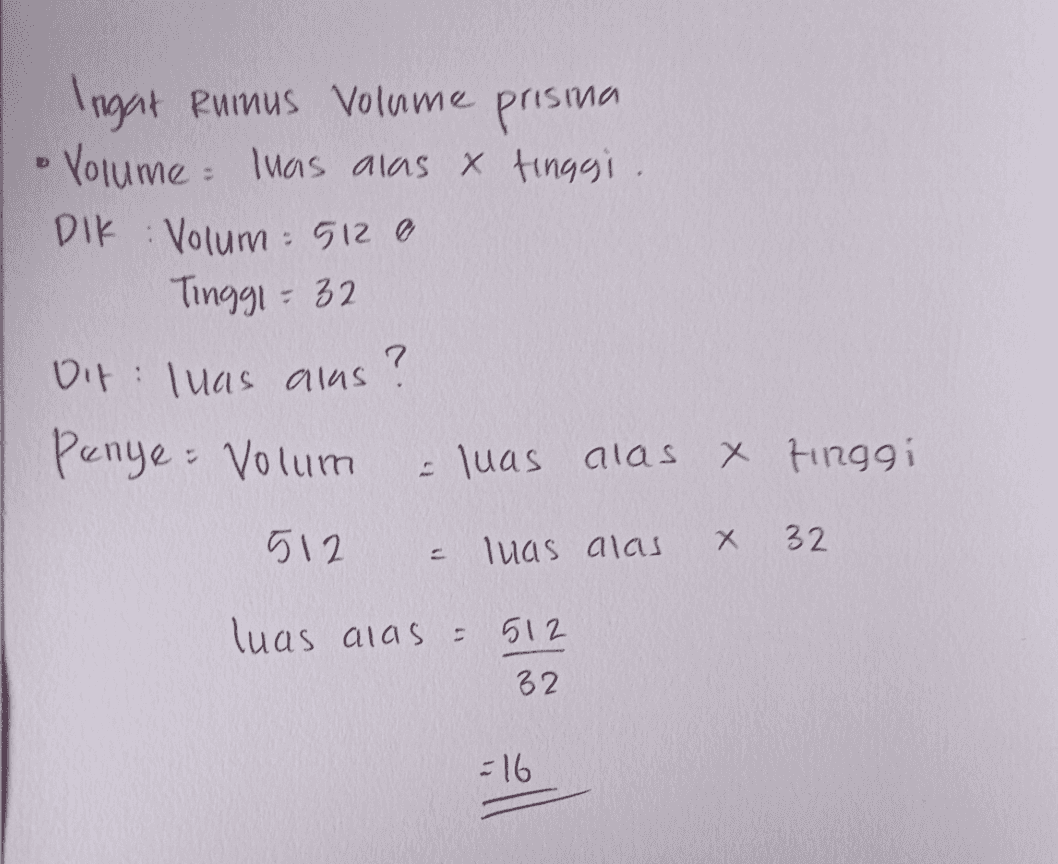 Ingat Rumus Volume prisma
• Volume = luas alas x tinggi.
DIK : Volum = 512
Tinggi = 32
Dit : luas alas ?
Penye = Volum = luas alas x tinggi
512 = luas alas x 32
luas alas = 512
32
= 16